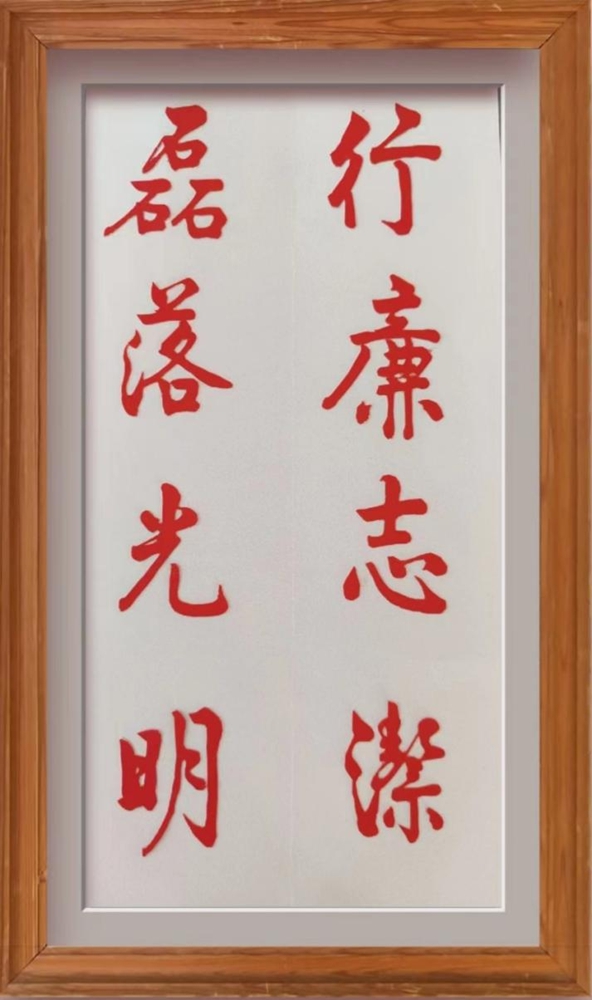 行廉志潔
磊落光明